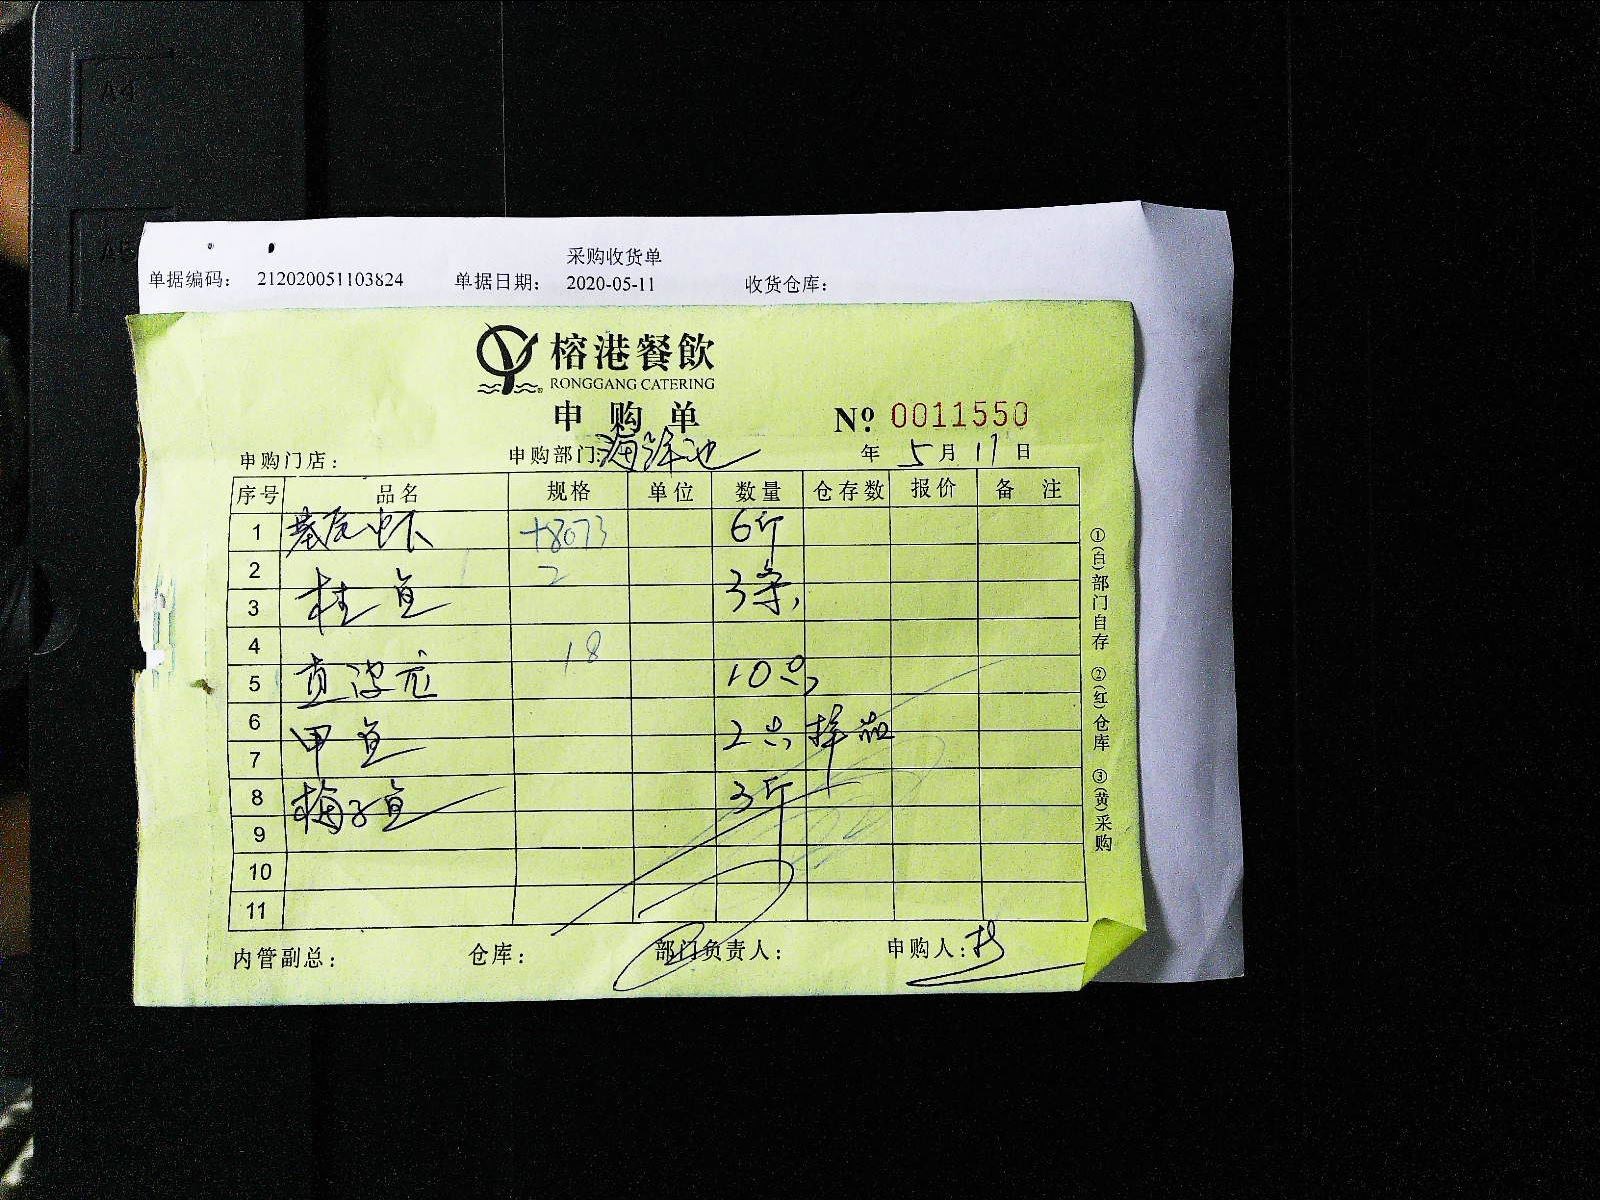 采购收货单
单据编码： 212020051103824 单据日期： 2020-05-11 收货仓库：
榕港餐飲
RONGGANG CATERING
申购单 Nº 0011550
申购门店： 申购部门：海洋池 年 5 月 11 日
序号 品名 规格 单位 数量 仓存数 报价 备注
1 基尾虾 +8073 6斤
2 2
3 桂鱼 3条
4 18
5 10只
6
7 甲鱼 2只
8 梅子鱼 3斤
9
10
11
内管副总： 仓库： 部门负责人： 申购人：
①(白)部门自存 ②(红)仓库 ③(黄)采购
A4
A5